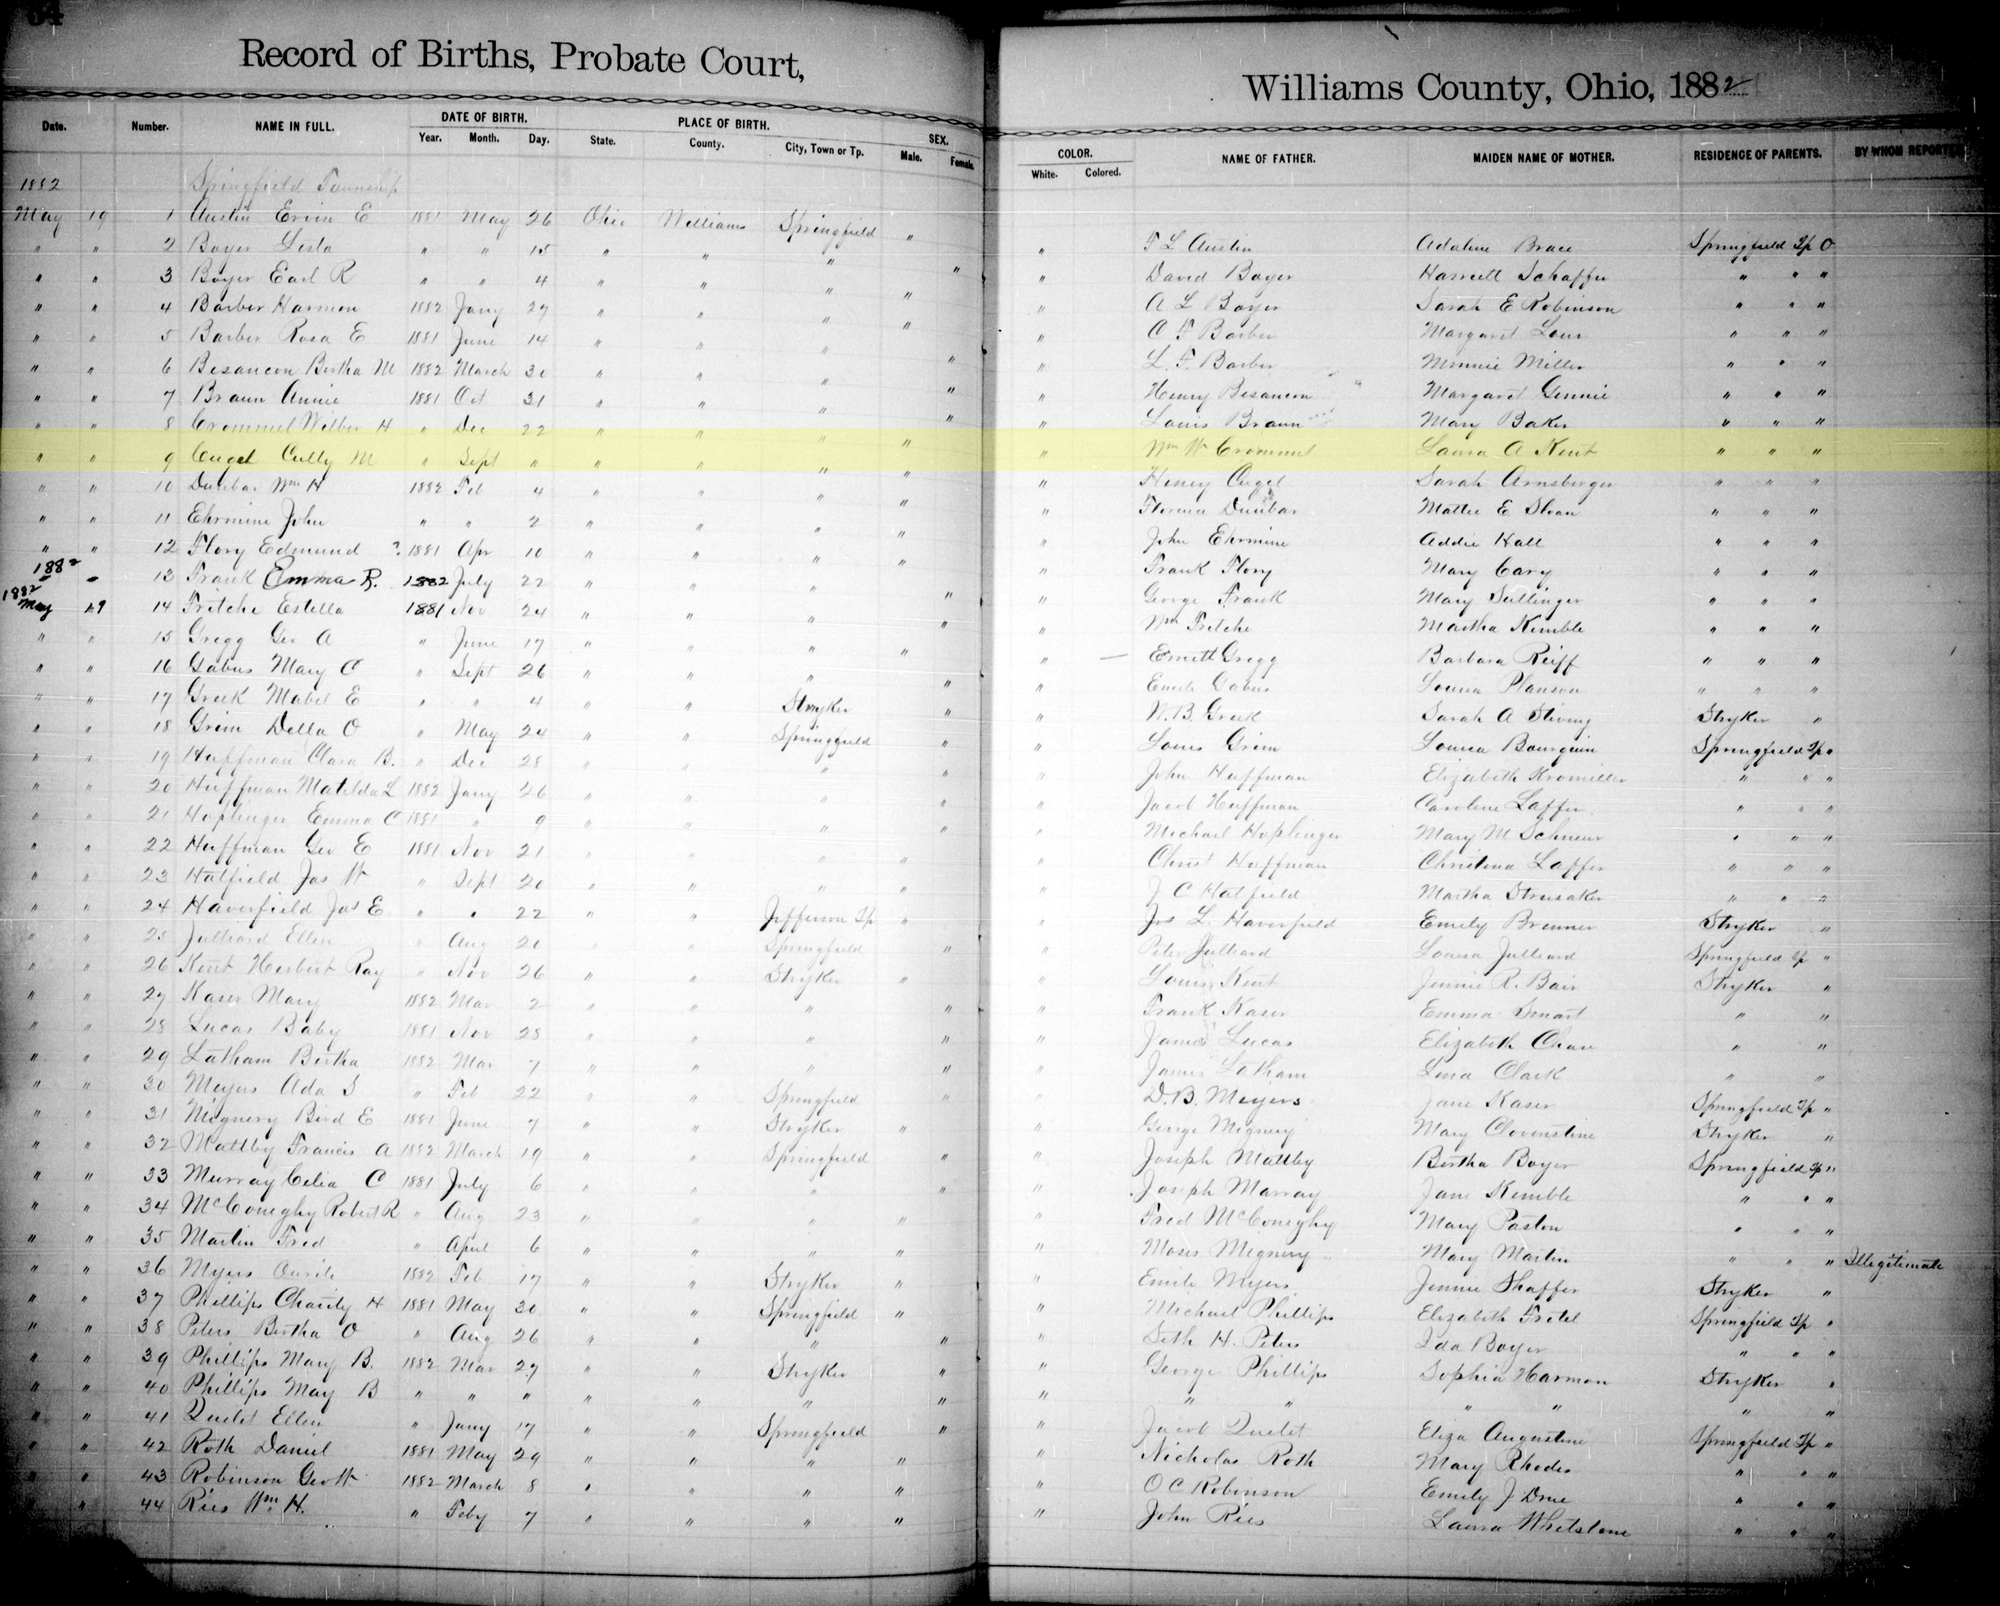 Record of Births, Probate Court, Williams County, Ohio, 1882
Date. Number. NAME IN FULL. DATE OF BIRTH. PLACE OF BIRTH. SEX. COLOR. NAME OF FATHER. MAIDEN NAME OF MOTHER. RESIDENCE OF PARENTS. BY WHOM REPORTED
Year. Month. Day. State. County. City, Town or Tp. Male. Female. White. Colored.
1882 Springfield Township
May 19 1 Austin Ervin E 1881 May 26 Ohio Williams Springfield " " F L Austin Adaline Brace Springfield Tp O
" " 2 Boyer Lesta " " 15 " " " " " David Boyer Harriett Schaffer " " "
" " 3 Boyer Earl R " " 4 " " " " " A L Boyer Sarah E Robinson " " "
" " 4 Barber Harmon 1882 Jany 29 " " " " " Barber Margaret " " "
" " 5 Barber Rosa E 1881 June 14 " " " " " L. F. Barber Minnie Miller " " "
" " 6 Besancon Bertha M 1882 March 30 " " " " " Henry Besancon Margaret Gennie " " "
" " 7 Braun Annie 1881 Oct 31 " " " " " Louis Braun Mary Baker " " "
" " 8 Crommel Wilber H " Dec 22 " " " " " Wm W Crommel Laura A Kent " " "
" " 9 Cugel Cully M " Sept " " " " " " Henry Cugel Sarah Arnsberger " " "
" " 10 Dunbar Wm H 1882 Feb 4 " " " " " Dunbar Mattie E Sloan " " "
" " 11 Ehrmine John " " 2 " " " " " John Ehrmine Addie Hall " " "
" " 12 Flory Edmund ? 1881 Apr 10 " " " " " Frank Flory Mary Cary " " "
1882 " 13 Frank Emma R. 1882 July 22 " " " " " George Frank Mary Sullinger " " "
1882 May 19 14 Fritche Estella 1881 Nov 24 " " " " " Wm Fritche Martha Kimble " " "
" " 15 Gregg Geo A " June 17 " " " " " Emett Gregg Barbara Reiff " " "
" " 16 Gabus Mary C " Sept 26 " " " " " Emile Gabus Louisa Planson " " "
" " 17 Greek Mabel E " " 4 " " Stryker " " W. B. Greek Sarah A Stiving Stryker "
" " 18 Grim Della O " May 24 " " Springfield " " Louis Grim Louisa Bourquin Springfield Tp "
" " 19 Huffman Clara B. " Dec 28 " " " " " John Huffman Elizabeth Kromiller " " "
" " 20 Huffman Matilda L 1882 Jany 26 " " " " " Jacob Huffman Caroline Laffer " " "
" " 21 Hoplinger Emma C 1881 " 9 " " " " " Michael Hoplinger Mary M " " "
" " 22 Huffman Geo E 1881 Nov 21 " " " " " Christ Huffman Christena Laffer " " "
" " 23 Hatfield Jas W " Sept 20 " " " " " J C Hatfield Martha Strusaker " " "
" " 24 Haverfield Jos E " " 22 " " Jefferson Tp " " Jos L. Haverfield Emily Brenner Stryker "
" " 25 Julliard Ellen " Aug 20 " " Springfield " " Peter Julliard Louisa Julliard Springfield Tp "
" " 26 Kent Herbert Ray " Nov 26 " " Stryker " " Louis Kent Jennie R. Bair Stryker "
" " 27 Kaser Mary 1882 Mar 2 " " " " " Frank Kaser Emma Smart " "
" " 28 Lucas Baby 1881 Nov 28 " " " " " James Lucas Elizabeth Chase " "
" " 29 Latham Bertha 1882 Mar 7 " " " " " James Latham Lena Clark " "
" " 30 Meyers Ada S " Feb 22 " " Springfield " " D. B. Meyers Jane Kaser Springfield Tp "
" " 31 Mignery Bird E 1881 June 7 " " Stryker " " George Mignery Mary Clevenstine Stryker "
" " 32 Maltby Francis A 1882 March 19 " " Springfield " " Joseph Maltby Bertha Boyer Springfield Tp "
" " 33 Murray Celia C 1881 July 6 " " " " " Joseph Murray Jane Kimble " " "
" " 34 McConeghy Robert R " Aug 23 " " " " " Fred McConeghy Mary Paston " " "
" " 35 Martin Fred " April 6 " " " " " Moses Mignery Mary Martin " " " Illegitimate
" " 36 Myers 1882 Feb 17 " " Stryker " " Emile Myers Jennie Shaffer Stryker "
" " 37 Phillips Charity H 1881 May 30 " " Springfield " " Michael Phillips Elizabeth Fretel Springfield Tp "
" " 38 Peters Bertha O " Aug 26 " " " " " Seth H. Peters Ida Boyer " " "
" " 39 Phillips Mary B. 1882 Mar 27 " " Stryker " " George Phillips Sophia Harmon Stryker "
" " 40 Phillips May B " " " " " " " " " " " " " "
" " 41 Quelet Ellen " Jany 17 " " Springfield " " Jacob Quelet Eliza Augustine Springfield Tp "
" " 42 Roth Daniel 1881 May 29 " " " " " Nicholas Roth Mary Rhodes " " "
" " 43 Robinson Geo W 1882 March 8 " " " " " O C Robinson Emily J " " "
" " 44 Ries Wm H. " Feby 7 " " " " " John Ries Laura Whetstone " " "